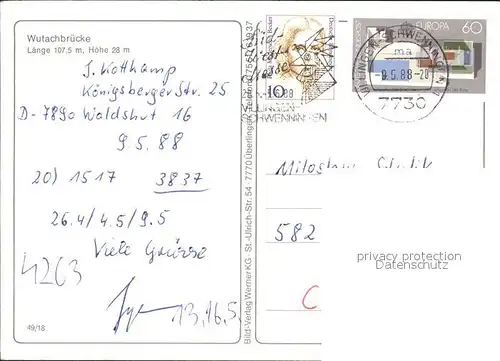 Wutachbrücke
Länge 107,5 m, Höhe 28 m
J. Kottkamp
Königsberger Str. 25
D-7890 Waldshut 16
9.5.88
20) 1517 3837
26.4/4.5/9.5
Viele Grüsse
4263
13.16.5.
49/18
Bild-Verlag Werner KG · St.-Ulrich-Str. 54 · 7770 Überlingen
10
VILLINGEN-
SCHWENNINGEN
EUROPA 60
VILLINGEN-SCHWENNINGEN
ma
-9.5.88-20
7730
Miloslav
582
C
privacy protection
Datenschutz